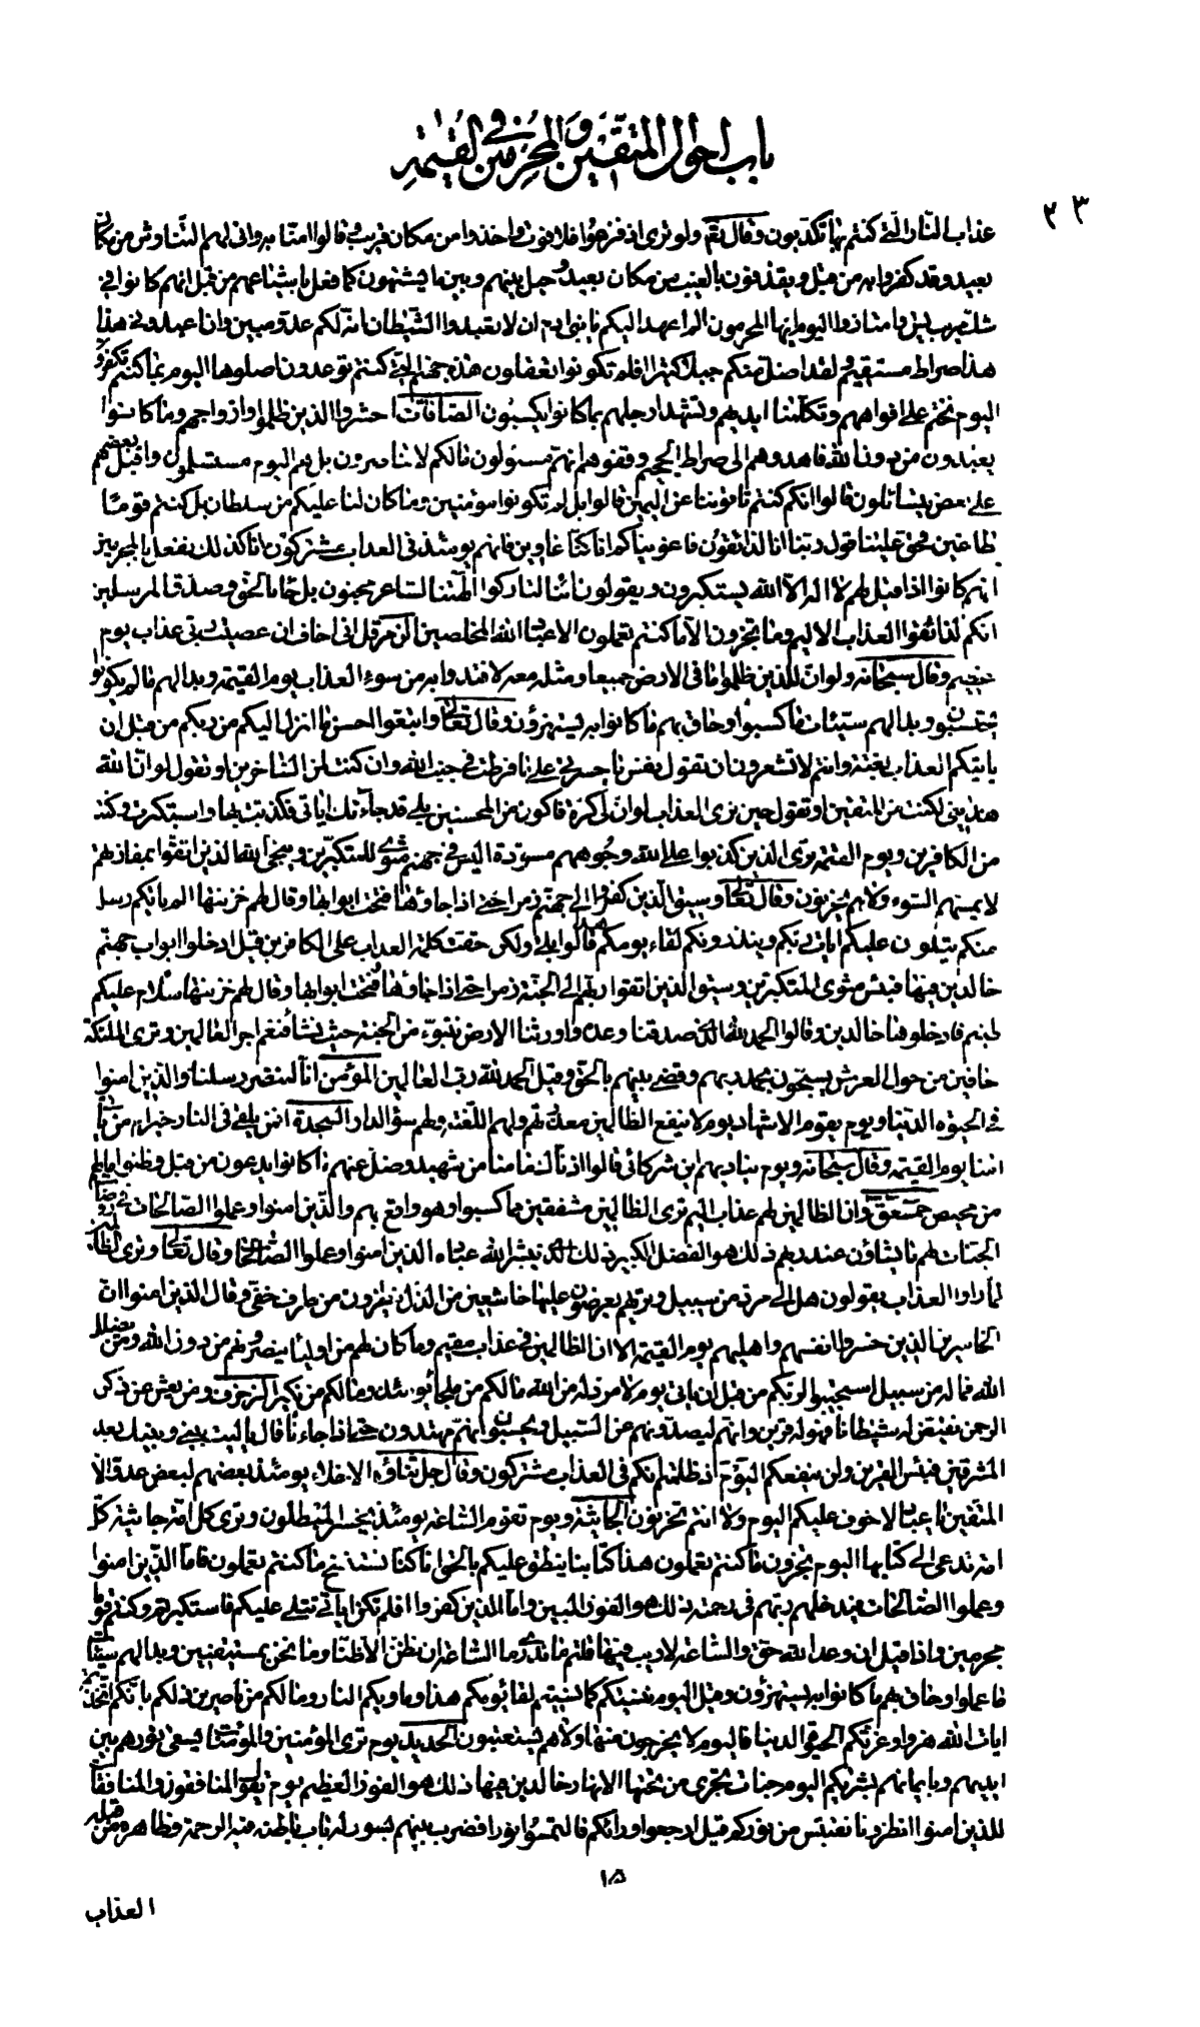 باب احوال المتقين والمجرمين في القيمة
٢٣
عذاب النار التي كنتم بها تكذبون وقال تعم ولو ترى اذ فزعوا فلا فوت واخذوا من مكان قريب وقالوا امنا به وانى لهم التناوش من مكان
بعيد وقد كفروا به من قبل ويقذفون بالغيب من مكان بعيد وحيل بينهم وبين ما يشتهون كما فعل باشياعهم من قبل انهم كانوا في
شك مريب يس وامتازوا اليوم ايها المجرمون الم اعهد اليكم يا بنى ادم ان لا تعبدوا الشيطان انه لكم عدو مبين وان اعبدونى هذا
هذا صراط مستقيم ولقد اضل منكم جبلا كثيرا افلم تكونوا تعقلون هذه جهنم التى كنتم توعدون اصلوها اليوم بما كنتم تكفرون
اليوم نختم على افواههم وتكلمنا ايديهم وتشهد ارجلهم بما كانوا يكسبون الصافات احشروا الذين ظلموا وازواجهم وما كانوا
يعبدون من دون الله فاهدوهم الى صراط الجحيم وقفوهم انهم مسئولون مالكم لا تناصرون بل هم اليوم مستسلمون واقبل بعضهم
على بعض يتسائلون قالوا انكم كنتم تاتوننا عن اليمين قالوا بل لم تكونوا مؤمنين وما كان لنا عليكم من سلطان بل كنتم قوما
طاغين فحق علينا قول ربنا انا لذائقون فاغويناكم انا كنا غاوين فانهم يومئذ فى العذاب مشتركون انا كذلك نفعل بالمجرمين
انهم كانوا اذا قيل لهم لا اله الا الله يستكبرون ويقولون ائنا لتاركوا الهتنا لشاعر مجنون بل جاء بالحق وصدق المرسلين
انكم لذائقوا العذاب الاليم وما تجزون الا ما كنتم تعملون الا عباد الله المخلصين الزمر قل انى اخاف ان عصيت ربى عذاب يوم
عظيم وقال سبحانه ولو ان للذين ظلموا ما فى الارض جميعا ومثله معه لافتدوا به من سوء العذاب يوم القيمة وبدا لهم مالم يكونوا
يحتسبون وبدا لهم سيئات ما كسبوا وحاق بهم ما كانوا به يستهزؤن وقال تعالى واتبعوا احسن ما انزل اليكم من ربكم من قبل ان
ياتيكم العذاب بغتة وانتم لا تشعرون ان تقول نفس يا حسرتى على ما فرطت فى جنب الله وان كنت لمن الساخرين او تقول لو ان الله
هدينى لكنت من المتقين او تقول حين ترى العذاب لو ان لى كرة فاكون من المحسنين بلى قد جاءتك اياتى فكذبت بها واستكبرت وكنت
من الكافرين ويوم القيمة ترى الذين كذبوا على الله وجوههم مسودة اليس فى جهنم مثوى للمتكبرين وينجى الله الذين اتقوا بمفازتهم
لا يمسهم السوء ولا هم يحزنون وقال تعالى وسيق الذين كفروا الى جهنم زمرا حتى اذا جاؤها فتحت ابوابها وقال لهم خزنتها الم ياتكم رسل
منكم يتلون عليكم ايات ربكم وينذرونكم لقاء يومكم هذا قالوا بلى ولكن حقت كلمة العذاب على الكافرين قيل ادخلوا ابواب جهنم
خالدين فيها فبئس مثوى المتكبرين وسيق الذين اتقوا ربهم الى الجنة زمرا حتى اذا جاؤها وفتحت ابوابها وقال لهم خزنتها سلام عليكم
طبتم فادخلوها خالدين وقالوا الحمد لله الذى صدقنا وعده واورثنا الارض نتبوء من الجنة حيث نشاء فنعم اجر العالمين وترى الملئكة
حافين من حول العرش يسبحون بحمد ربهم وقضى بينهم بالحق وقيل الحمد لله رب العالمين المؤمن انا لننصر رسلنا والذين امنوا
فى الحيوة الدنيا ويوم يقوم الاشهاد يوم لا ينفع الظالمين معذرتهم ولهم اللعنة ولهم سوء الدار السجدة افمن يلقى فى النار خير ام من ياتى
امنا يوم القيمة وقال سبحانه ويوم يناديهم اين شركائى قالوا اذناك ما منا من شهيد وضل عنهم ما كانوا يدعون من قبل وظنوا ما لهم
من محيص حمعسق وان الظالمين لهم عذاب اليم ترى الظالمين مشفقين مما كسبوا وهو واقع بهم والذين امنوا وعملوا الصالحات فى روضات
الجنات لهم ما يشاؤن عند ربهم ذلك هو الفضل الكبير ذلك الذى يبشر الله عباده الذين امنوا وعملوا الصالحات وقال تعالى وترى الظالمين
لما راوا العذاب يقولون هل الى مرد من سبيل وتريهم يعرضون عليها خاشعين من الذل ينظرون من طرف خفى وقال الذين امنوا ان
الخاسرين الذين خسروا انفسهم واهليهم يوم القيمة الا ان الظالمين فى عذاب مقيم وما كان لهم من اولياء ينصرونهم من دون الله ومن يضلل
الله فما له من سبيل استجيبوا لربكم من قبل ان ياتى يوم لا مرد له من الله مالكم من ملجأ يومئذ ومالكم من نكير الزخرف ومن يعش عن ذكر
الرحمن نقيض له شيطانا فهو له قرين وانهم ليصدونهم عن السبيل ويحسبون انهم مهتدون حتى اذا جاءنا قال يا ليت بينى وبينك بعد
المشرقين فبئس القرين ولن ينفعكم اليوم اذ ظلمتم انكم فى العذاب مشتركون وقال جل ثناؤه الاخلاء يومئذ بعضهم لبعض عدو الا
المتقين يا عباد لا خوف عليكم اليوم ولا انتم تحزنون الجاثية ويوم تقوم الساعة يومئذ يخسر المبطلون وترى كل امة جاثية كل
امة تدعى الى كتابها اليوم تجزون ما كنتم تعملون هذا كتابنا ينطق عليكم بالحق انا كنا نستنسخ ما كنتم تعملون فاما الذين امنوا
وعملوا الصالحات فيدخلهم ربهم فى رحمته ذلك هو الفوز المبين واما الذين كفروا افلم تكن اياتى تتلى عليكم فاستكبرتم وكنتم قوما
مجرمين واذا قيل ان وعد الله حق والساعة لا ريب فيها قلتم ما ندرى ما الساعة ان نظن الا ظنا وما نحن بمستيقنين وبدا لهم سيئات
ما عملوا وحاق بهم ما كانوا به يستهزؤن وقيل اليوم ننسيكم كما نسيتم لقاء يومكم هذا وماويكم النار ومالكم من ناصرين ذلكم بانكم اتخذتم
ايات الله هزوا وغرتكم الحيوة الدنيا فاليوم لا يخرجون منها ولا هم يستعتبون الحديد يوم ترى المؤمنين والمؤمنات يسعى نورهم بين
ايديهم وبايمانهم بشريكم اليوم جنات تجرى من تحتها الانهار خالدين فيها ذلك هو الفوز العظيم يوم يقول المنافقون والمنافقات
للذين امنوا انظرونا نقتبس من نوركم قيل ارجعوا ورائكم فالتمسوا نورا فضرب بينهم بسور له باب باطنه فيه الرحمة وظاهره من قبله
١٥
العذاب